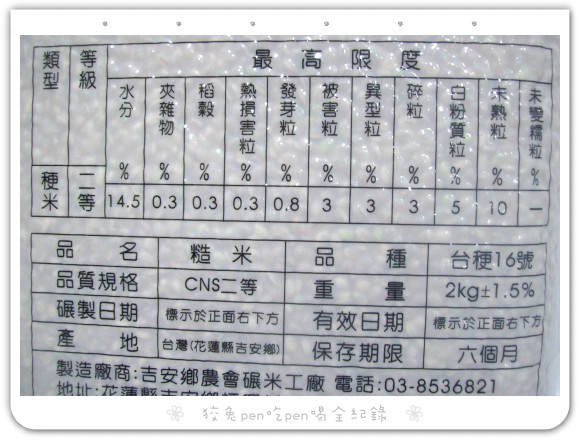 類型 等級 最高限度
水分% 夾雜物% 稻穀% 熱損害粒% 發芽粒% 被害粒% 異型粒% 碎粒% 白粉質粒% 未熟粒% 未變糯粒%
稉米 二等 14.5 0.3 0.3 0.3 0.8 3 3 3 5 10 —
品名 糙米 品種 台稉16號
品質規格 CNS二等 重量 2kg±1.5%
碾製日期 標示於正面右下方 有效日期 標示於正面右下方
產地 台灣(花蓮縣吉安鄉) 保存期限 六個月
製造廠商:吉安鄉農會碾米工廠 電話:03-8536821
地址:花蓮縣吉安鄉
狡兔pen吃pen喝全紀錄